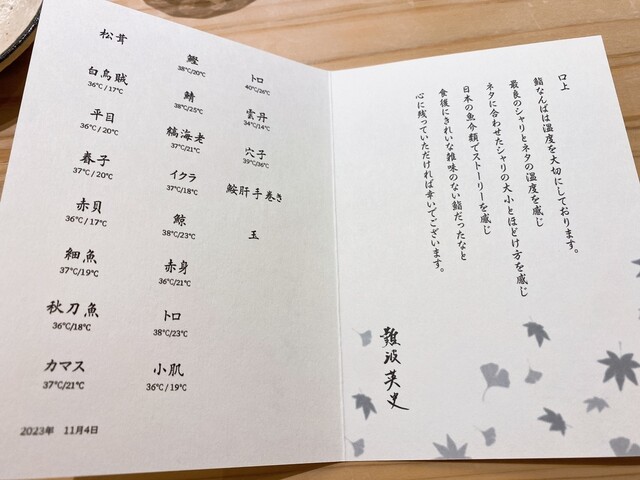 松茸
白烏賊
36℃/17℃
平目
36℃/20℃
春子
37℃/20℃
赤貝
36℃/17℃
細魚
37℃/19℃
秋刀魚
36℃/18℃
カマス
37℃/21℃
鰹
38℃/20℃
鯖
38℃/25℃
縞海老
37℃/21℃
イクラ
37℃/18℃
鯨
38℃/23℃
赤身
36℃/21℃
トロ
38℃/23℃
小肌
36℃/19℃
トロ
40℃/26℃
雲丹
34℃/14℃
穴子
39℃/36℃
鮟肝手巻き
玉
2023年 11月4日
口上
鮨なんばは温度を大切にしております。
最良のシャリとネタの温度を感じ
ネタに合わせたシャリの大小とほどけ方を感じ
日本の魚介類でストーリーを感じ
食後にきれいな雑味のない鮨だったなと
心に残っていただければ幸いでございます。
難波英史